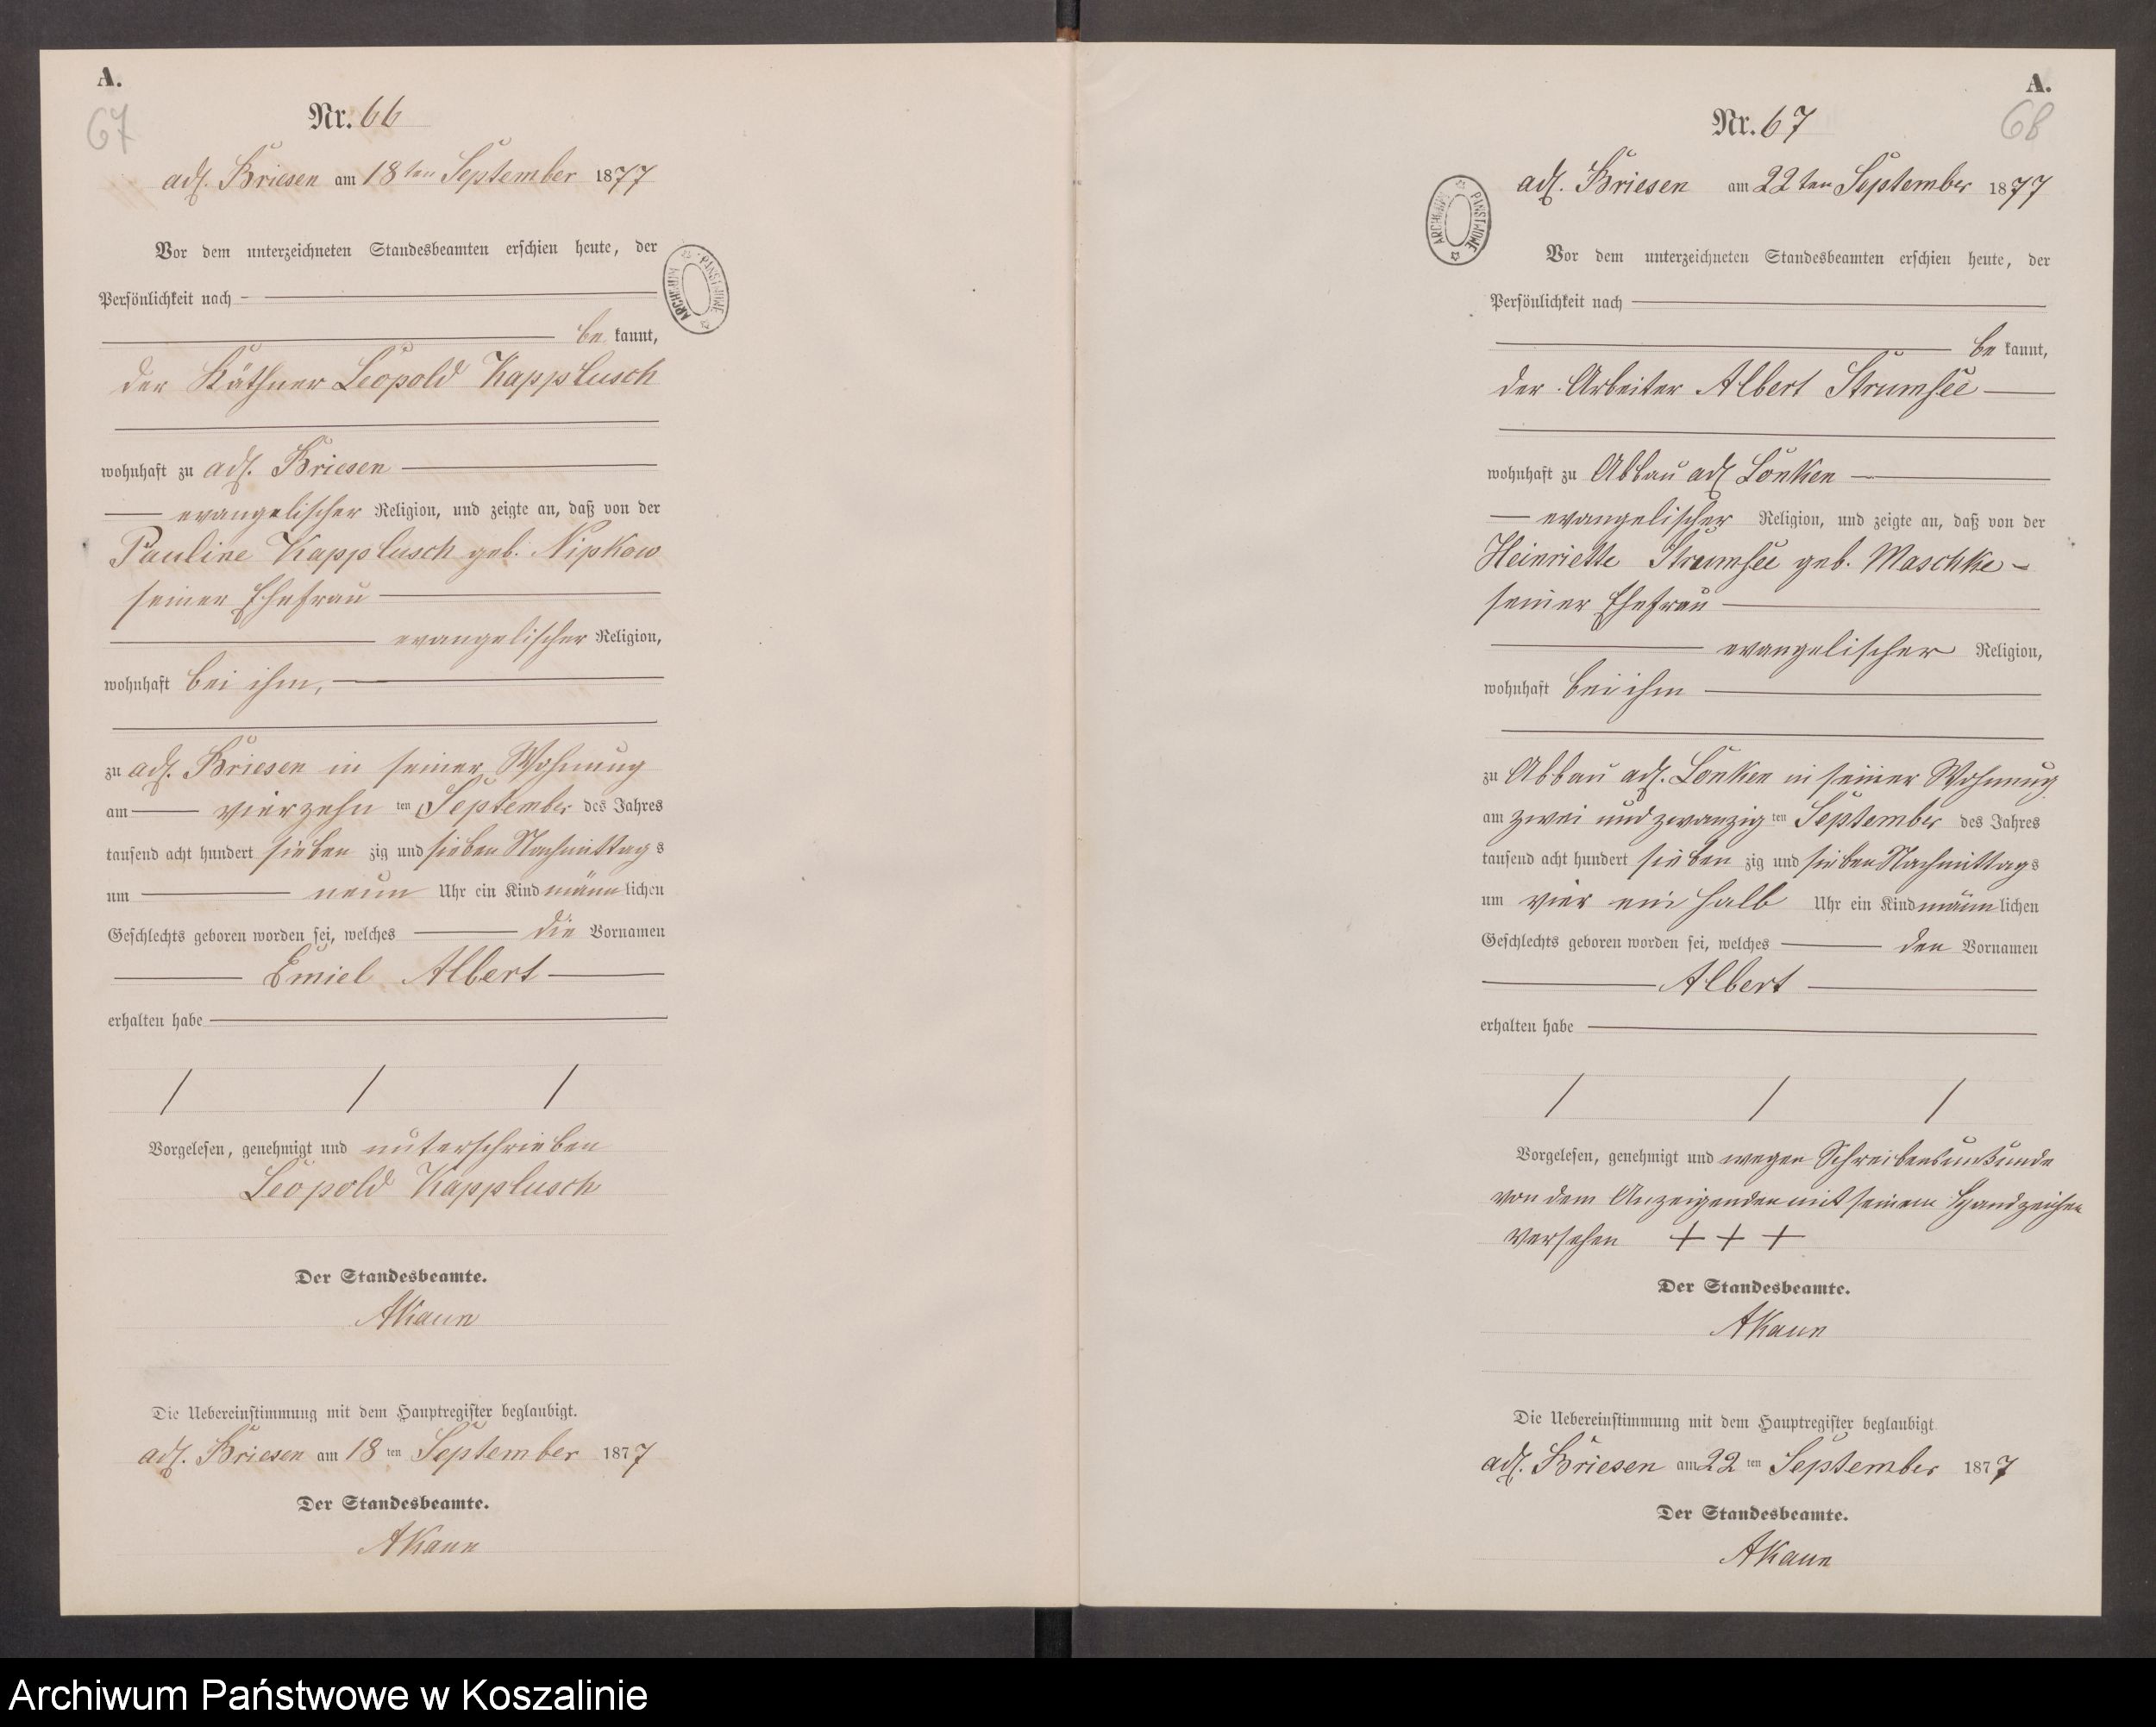 A.
67
Nr. 66
adl. Briesen am 18ten September 1877
Vor dem unterzeichneten Standesbeamten erschien heute, der
Persönlichkeit nach
be kannt,
der Käthner Leopold Kapplusch
wohnhaft zu adl. Briesen
evangelischer Religion, und zeigte an, daß von der
Pauline Kapplusch geb. Nipkow
seiner Ehefrau
evangelischer Religion,
wohnhaft bei ihm,
zu adl. Briesen in seiner Wohnung
am vierzehn ten September des Jahres
tausend acht hundert sieben zig und sieben Nachmittags
um neun Uhr ein Kind männlichen
Geschlechts geboren worden sei, welches die Vornamen
Emiel Albert
erhalten habe
Vorgelesen, genehmigt und unterschrieben
Leopold Kapplusch
Der Standesbeamte.
AKaun
Die Uebereinstimmung mit dem Hauptregister beglaubigt.
adl. Briesen am 18 ten September 1877
Der Standesbeamte.
AKaun
ARCHIWUM PAŃSTWOWE
A.
68
Nr. 67
adl. Briesen am 22ten September 1877
ARCHIWUM PAŃSTWOWE
Vor dem unterzeichneten Standesbeamten erschien heute, der
Persönlichkeit nach
be kannt,
der Arbeiter Albert Strumsee
wohnhaft zu Abbau adl Lonken
evangelischer Religion, und zeigte an, daß von der
Heinriette Strumsee geb. Maschke
seiner Ehefrau
evangelischer Religion,
wohnhaft bei ihm
zu Abbau adl. Lonken in seiner Wohnung
am zwei und zwanzig ten September des Jahres
tausend acht hundert sieben zig und sieben Nachmittags
um vier ein halb Uhr ein Kind männlichen
Geschlechts geboren worden sei, welches den Vornamen
Albert
erhalten habe
Vorgelesen, genehmigt und wegen Schreibensunkunde
von dem Anzeigenden mit seinem Handzeichen
versehen + + +
Der Standesbeamte.
AKaun
Die Uebereinstimmung mit dem Hauptregister beglaubigt
adl. Briesen am 22 ten September 1877
Der Standesbeamte.
AKaun
Archiwum Państwowe w Koszalinie